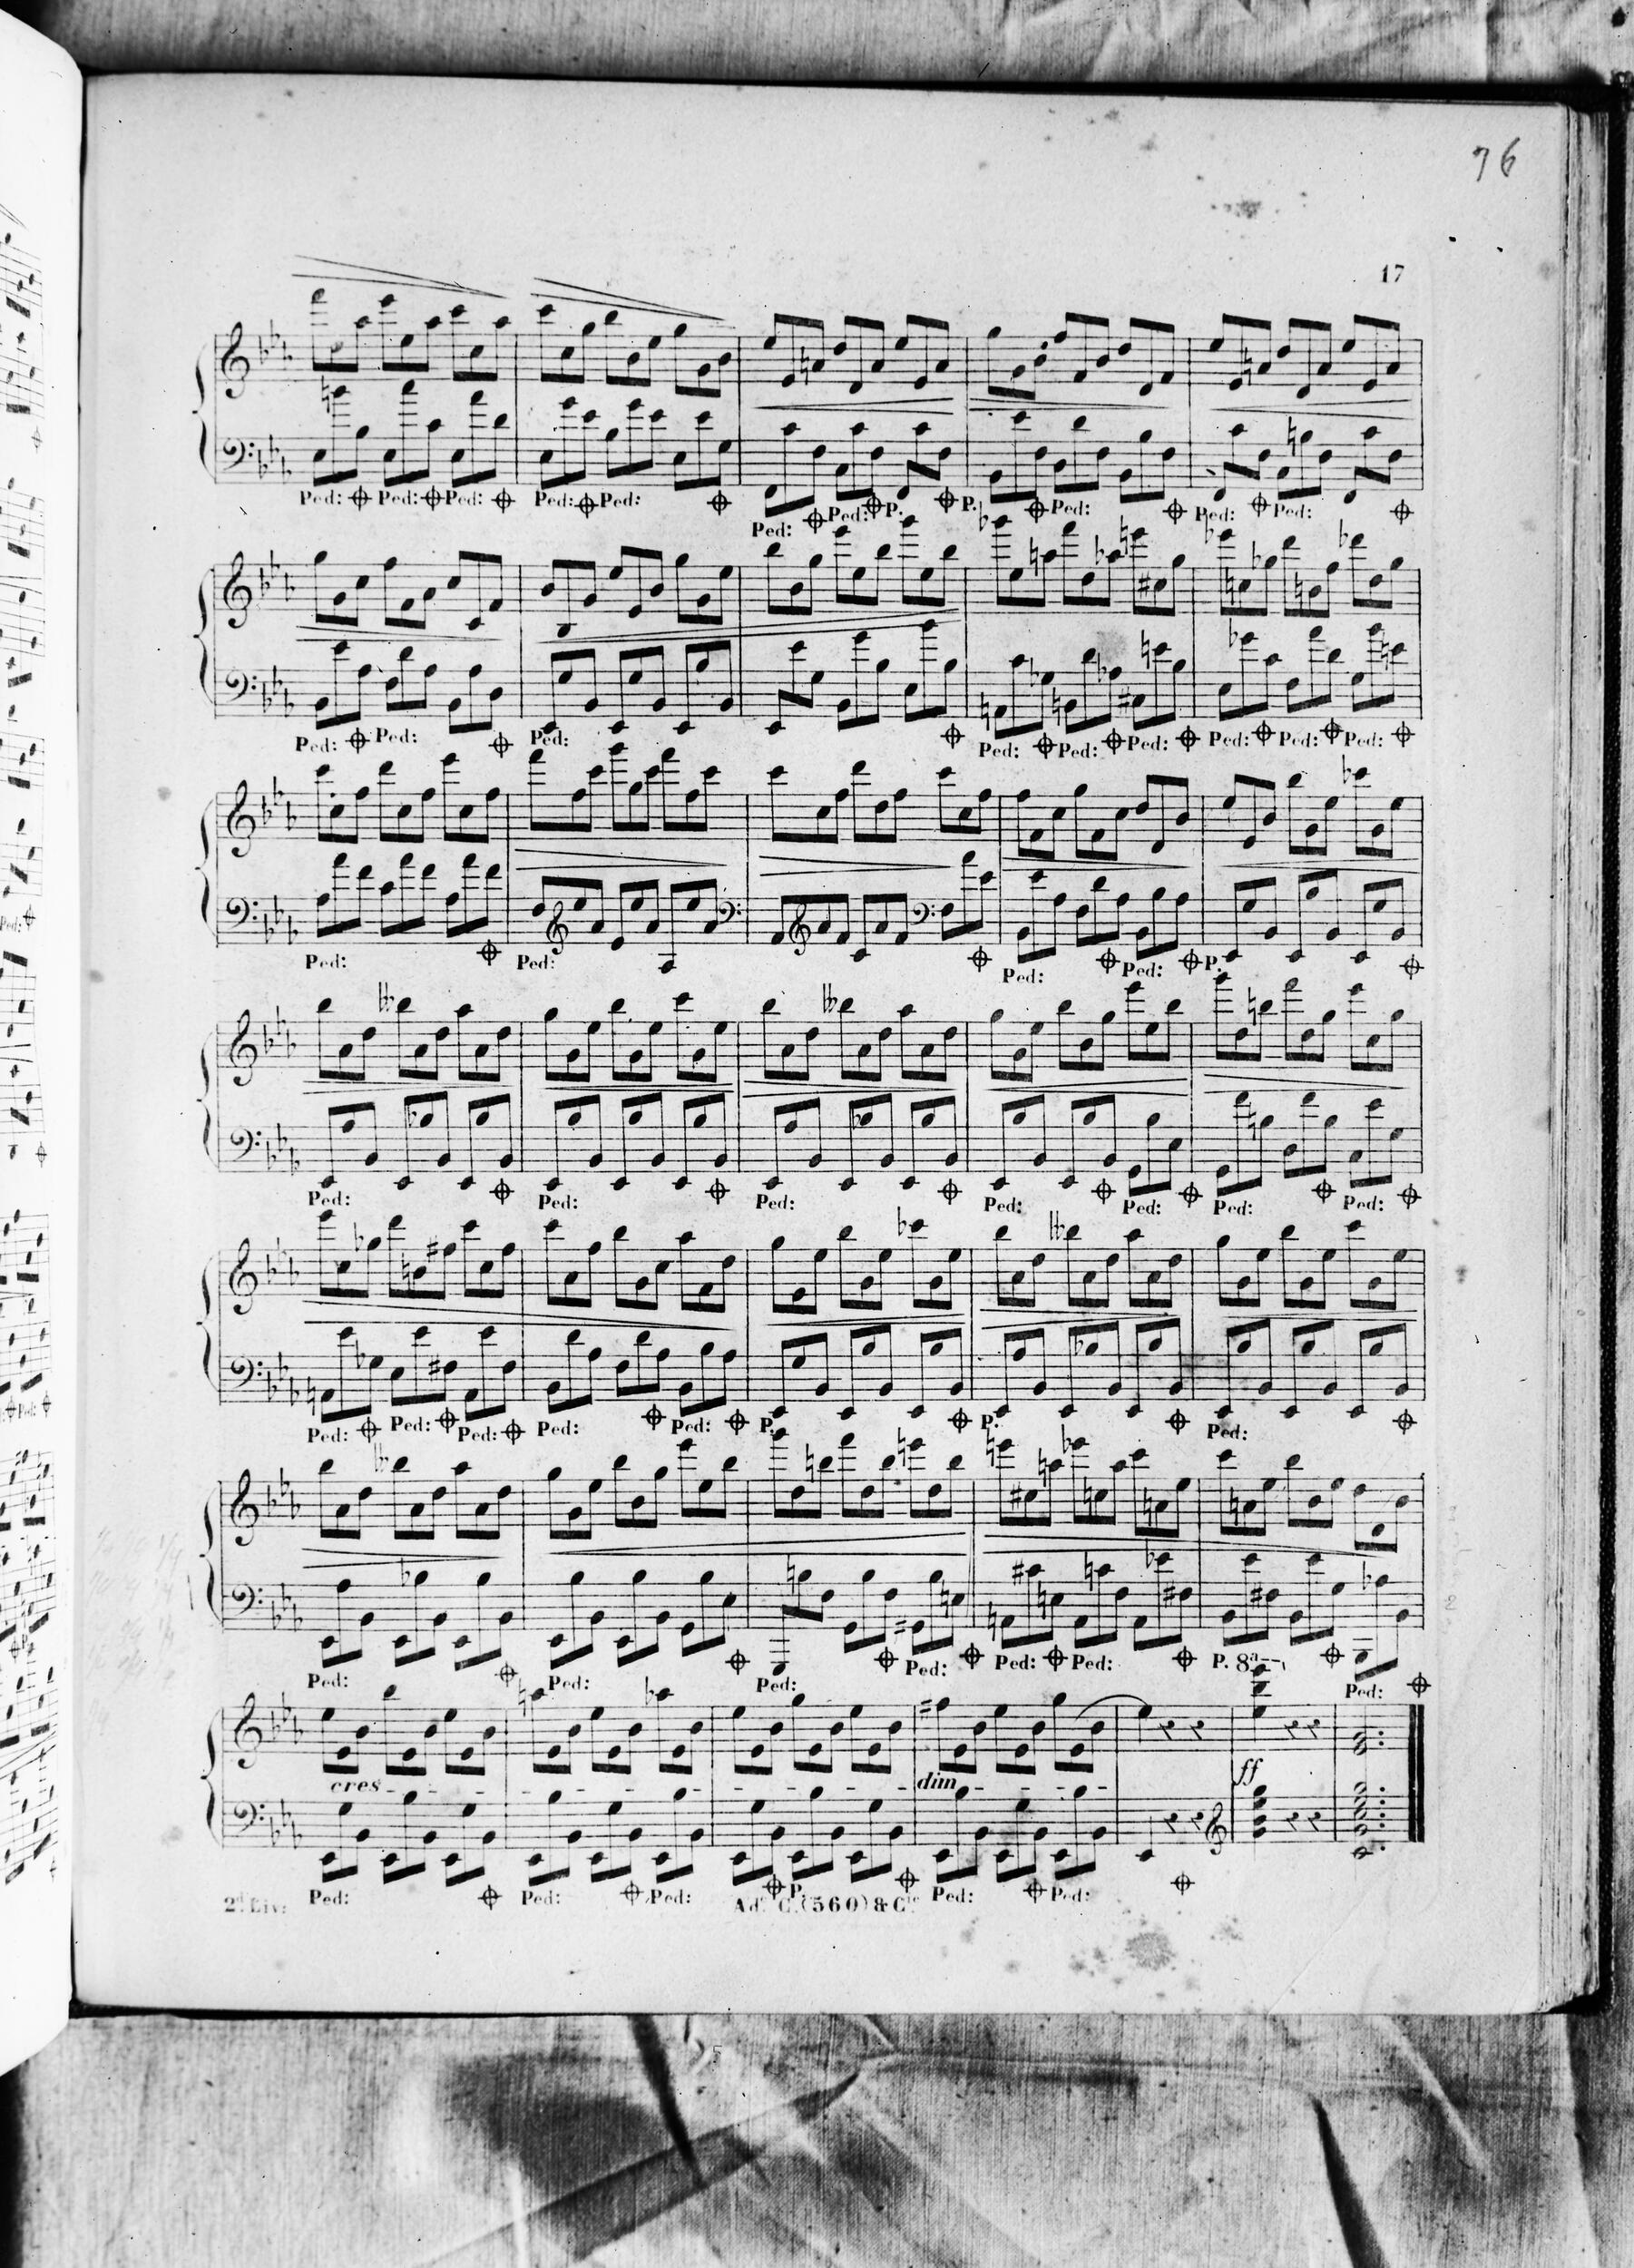 76
17
Ped: Ped: Ped: Ped: Ped: Ped: Ped: P. P. Ped: Ped: Ped:
Ped: Ped: Ped: Ped: Ped: Ped: Ped: Ped: Ped:
Ped: Ped: Ped: Ped: P.
Ped: Ped: Ped: Ped: Ped: Ped: Ped:
Ped: Ped: Ped: Ped: Ped: P. P. Ped:
Ped: Ped: Ped: Ped: Ped: Ped: P. 8a Ped:
cres dim ff
Ped: Ped: Ped: P. Ped: Ped:
2d Liv: Ad. C. (560) & Cie